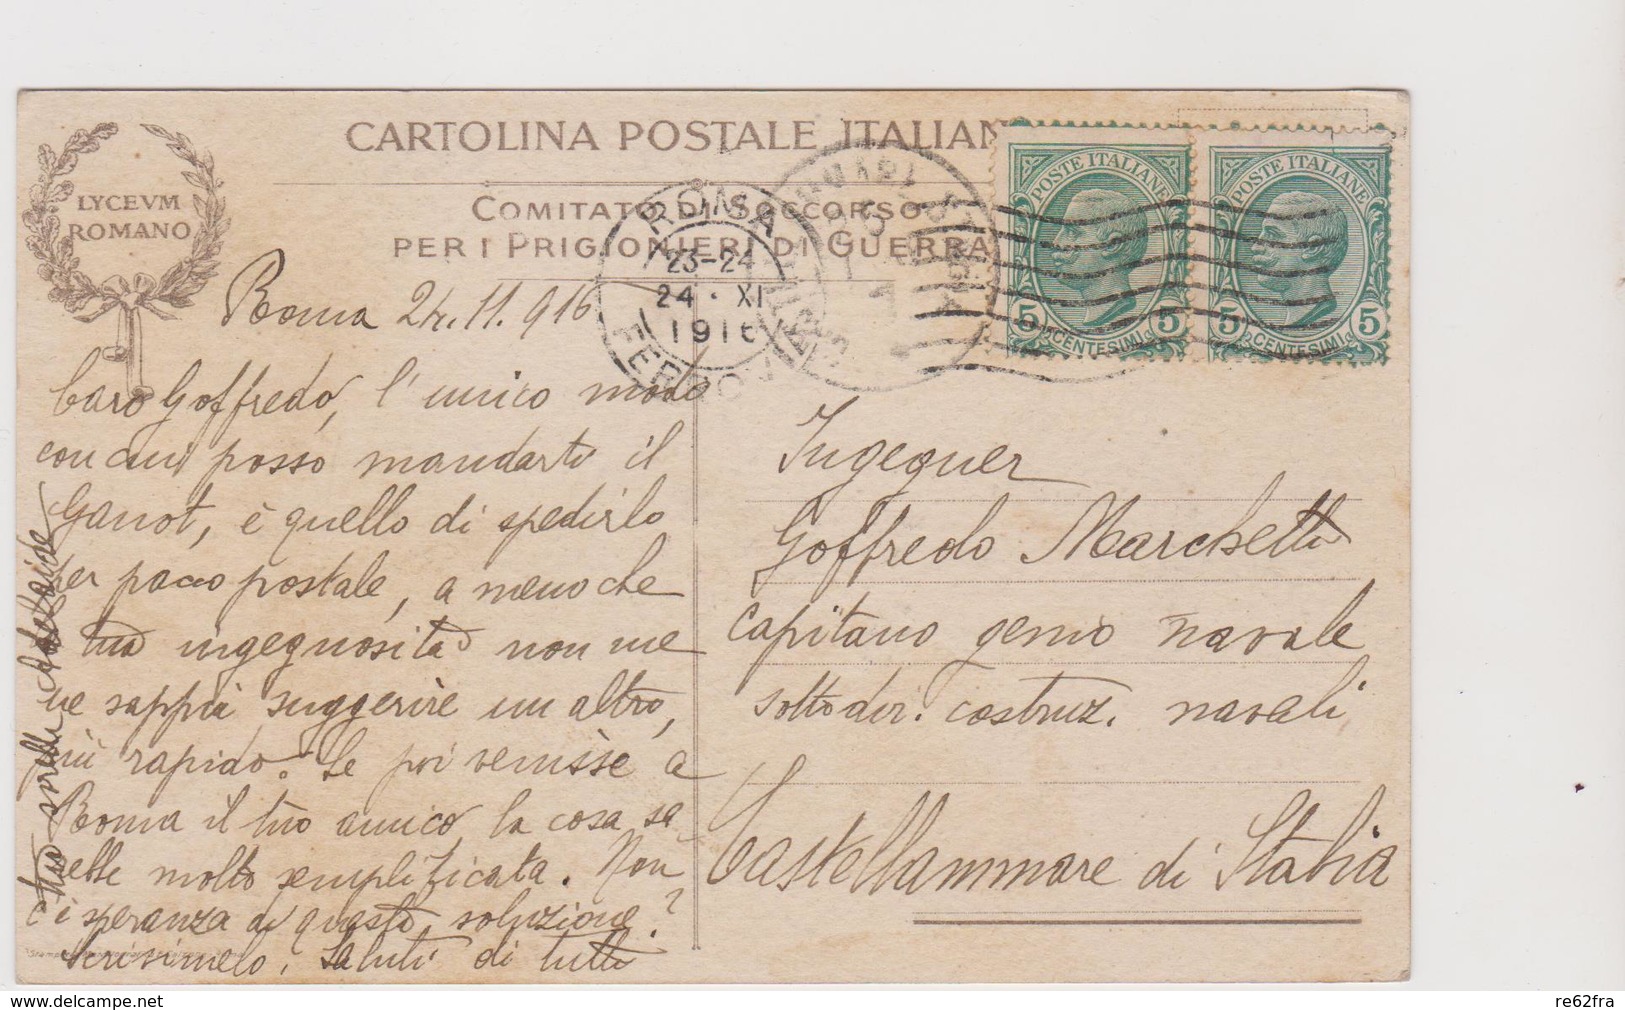 CARTOLINA POSTALE ITALIAN
LYCEVM
ROMANO
COMITATO DI SOCCORSO
PER I PRIGIONIERI DI GUERRA
POSTE ITALIANE
5 CENTESIMI 5
POSTE ITALIANE
5 CENTESIMI 5
ROMA
23-24
24 · XI
1916
FERROVIA
Roma 24.11.916
Caro Goffredo, l'unico modo
con cui posso mandarti il
Ganot, è quello di spedirlo
per pacco postale, a meno che
tua ingegnosità non me
ne sappia suggerire un altro,
più rapido. Se poi venisse a
Roma il tuo amico, la cosa sa
rebbe molto semplificata. Non
c'è speranza di questa soluzione?
Scrivimelo. Saluti di tutti
tua sorella Adelaide
Ingegner
Goffredo Marchetti
Capitano genio navale
sottodir. costruz. navali
Castellammare di Stabia
delcampe.net
re62fra